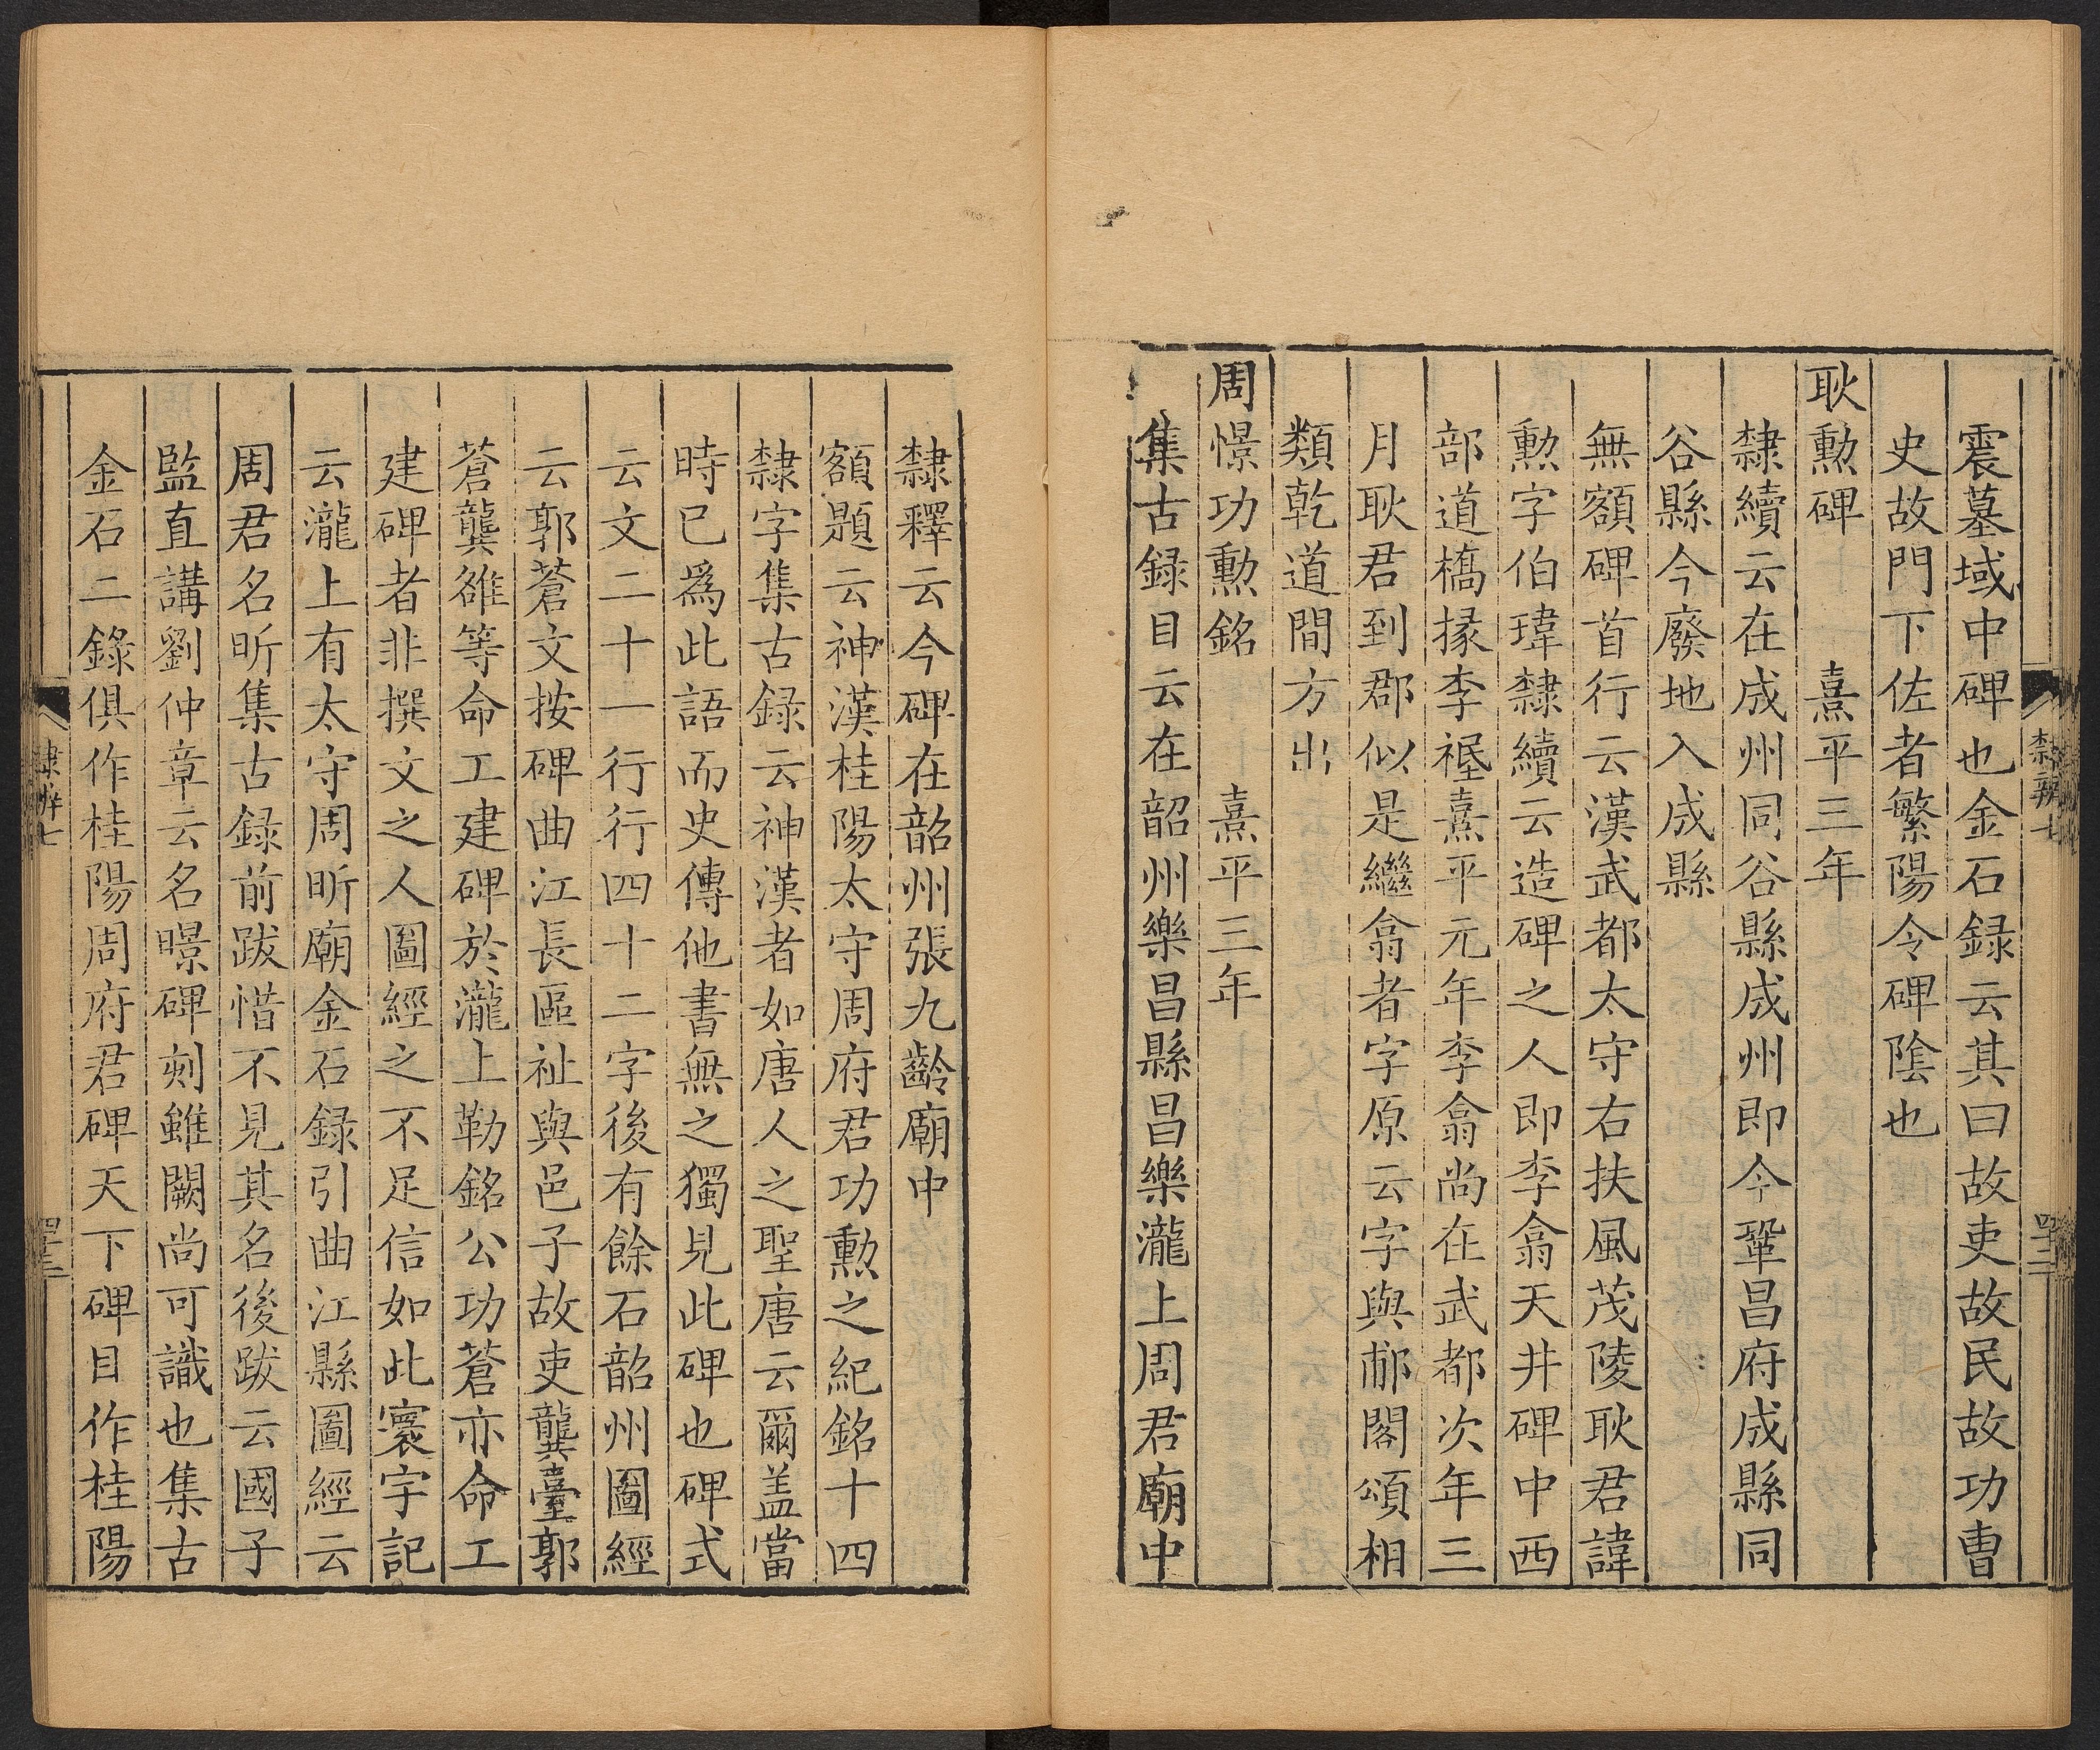 震墓域中碑也金石録云其曰故吏故民故功曹
史故門下佐者繁陽令碑陰也
耿勲碑 熹平三年
隸續云在成州同谷縣成州即今鞏昌府成縣同
谷縣今廢地入成縣
無額碑首行云漢武都太守右扶風茂陵耿君諱
勲字伯瑋隸續云造碑之人即李翕天井碑中西
部道橋掾李禋熹平元年李翕尚在武都次年三
月耿君到郡似是繼翕者字原云字與郙閣頌相
類乾道間方出
周憬功勲銘 熹平三年
集古録目云在韶州樂昌縣昌樂瀧上周君廟中
隸釋云今碑在韶州張九齡廟中
額題云神漢桂陽太守周府君功勲之紀銘十四
隸字集古録云神漢者如唐人之聖唐云爾盖當
時已爲此語而史傳他書無之獨見此碑也碑式
云文二十一行行四十二字後有餘石韶州圖經
云郭蒼文按碑曲江長區祉與邑子故吏龔臺郭
蒼龔雒等命工建碑於瀧上勒銘公功蒼亦命工
建碑者非撰文之人圖經之不足信如此寰宇記
云瀧上有太守周昕廟金石録引曲江縣圖經云
周君名昕集古録前跋惜不見其名後跋云國子
監直講劉仲章云名暻碑刻雖闕尚可識也集古
金石二錄俱作桂陽周府君碑天下碑目作桂陽
隸辨七
四十三